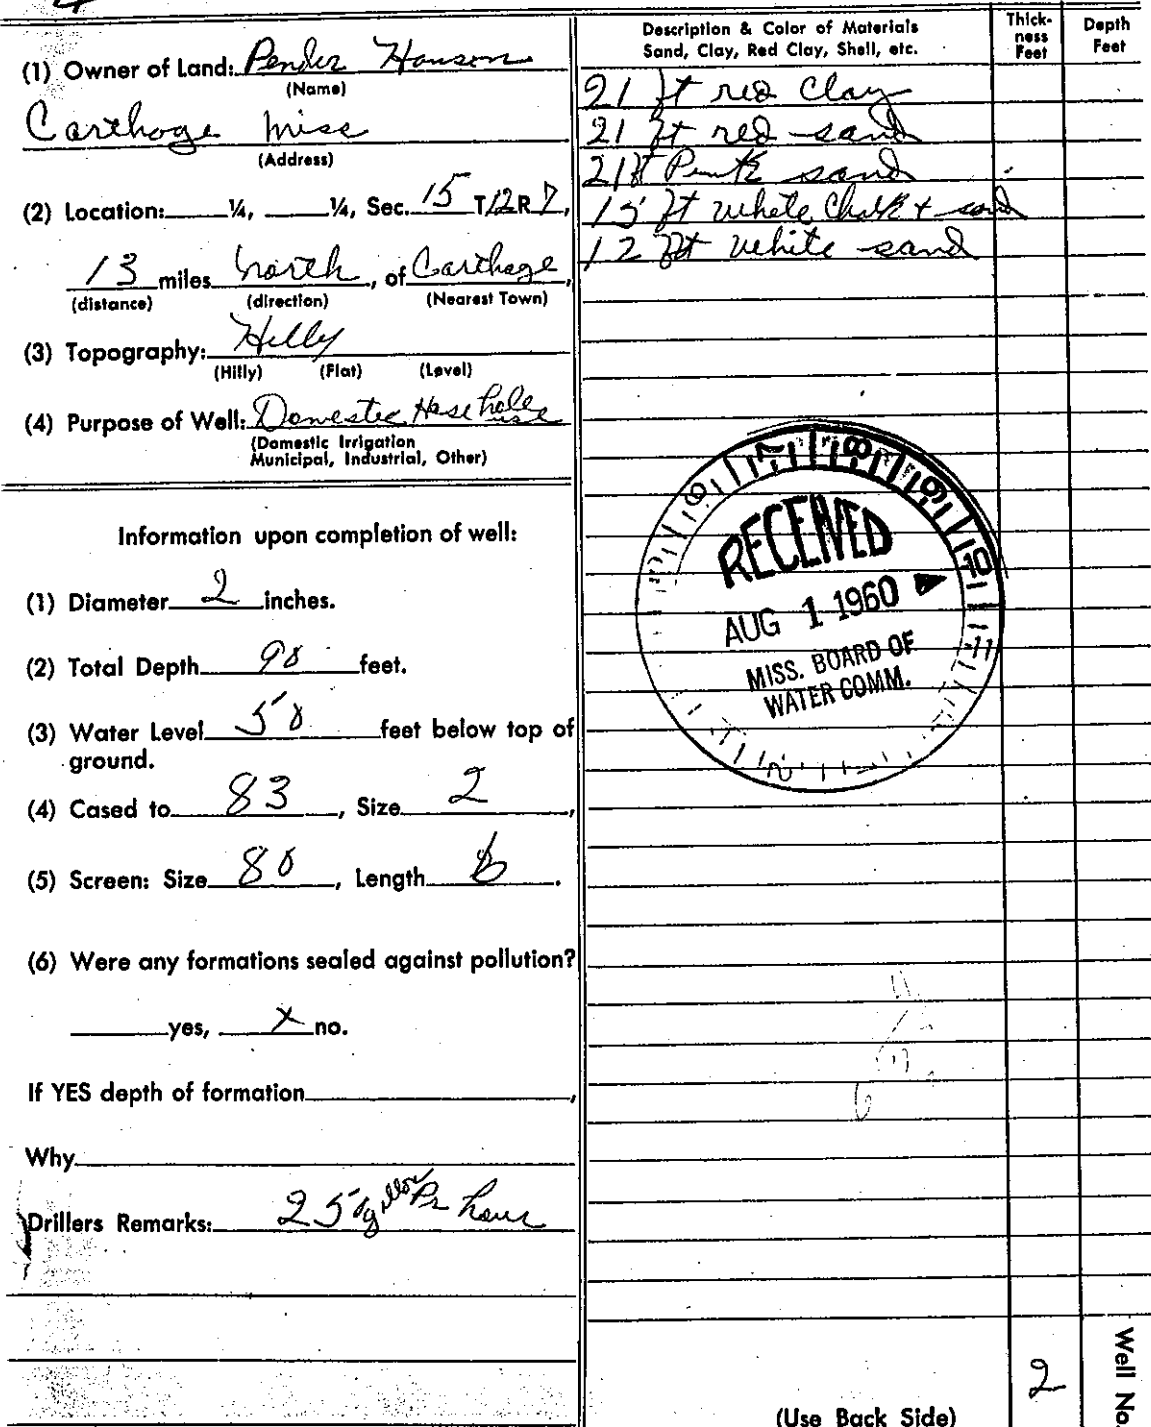 (1) Owner of Land: Pender Hanson
(Name)
Carthage Miss
(Address)
(2) Location: ¼, ¼, Sec. 15 T12R7,
13 miles North, of Carthage,
(distance) (direction) (Nearest Town)
(3) Topography: Hilly
(Hilly) (Flat) (Level)
(4) Purpose of Well: Domestic Hase hole use
(Domestic Irrigation
Municipal, Industrial, Other)
Information upon completion of well:
(1) Diameter 2 inches.
(2) Total Depth 90 feet.
(3) Water Level 50 feet below top of
ground.
(4) Cased to 83, Size 2,
(5) Screen: Size 80, Length 6.
(6) Were any formations sealed against pollution?
yes, X no.
If YES depth of formation,
Why
Drillers Remarks: 250 gallon Pr hour
Description & Color of Materials
Sand, Clay, Red Clay, Shell, etc.
Thick-
ness
Feet
Depth
Feet
21 ft red Clay
21 ft red sand
21 ft Pink sand
15 ft white Chalk + sand
12 ft white sand
RECEIVED
AUG 1 1960
MISS. BOARD OF
WATER COMM.
7 8 9 10 11
2
Well No.
(Use Back Side)